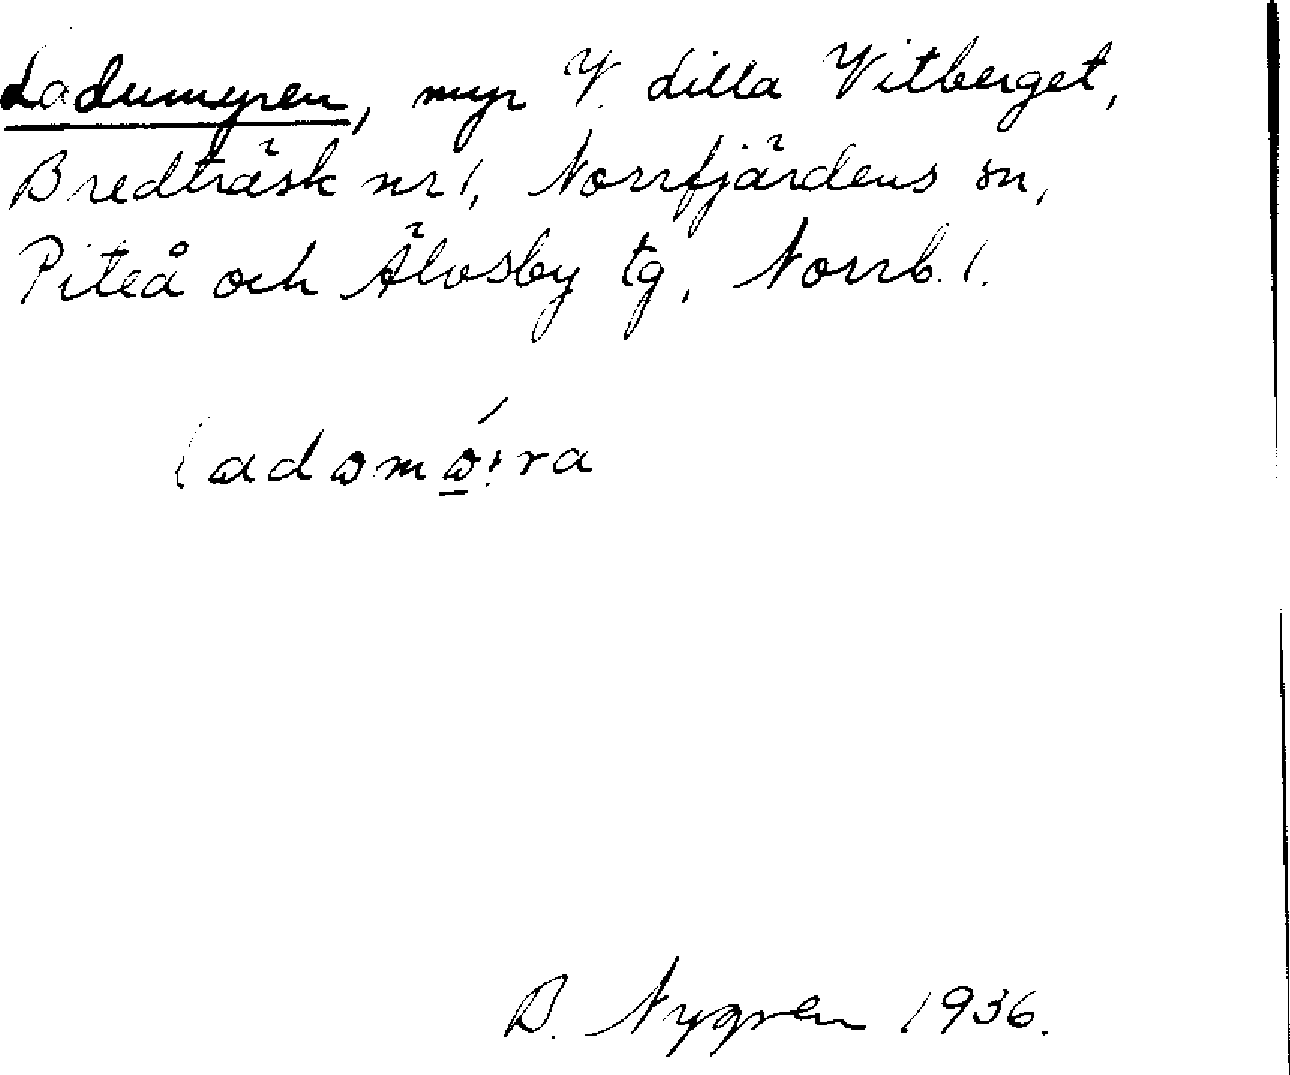 Ladumyren, myr V. Lilla Vitberget,
Bredträsk nr 1, Norrfjärdens sn,
Piteå och Älvsby tg, Norrb. l.
B. Nygren 1936.